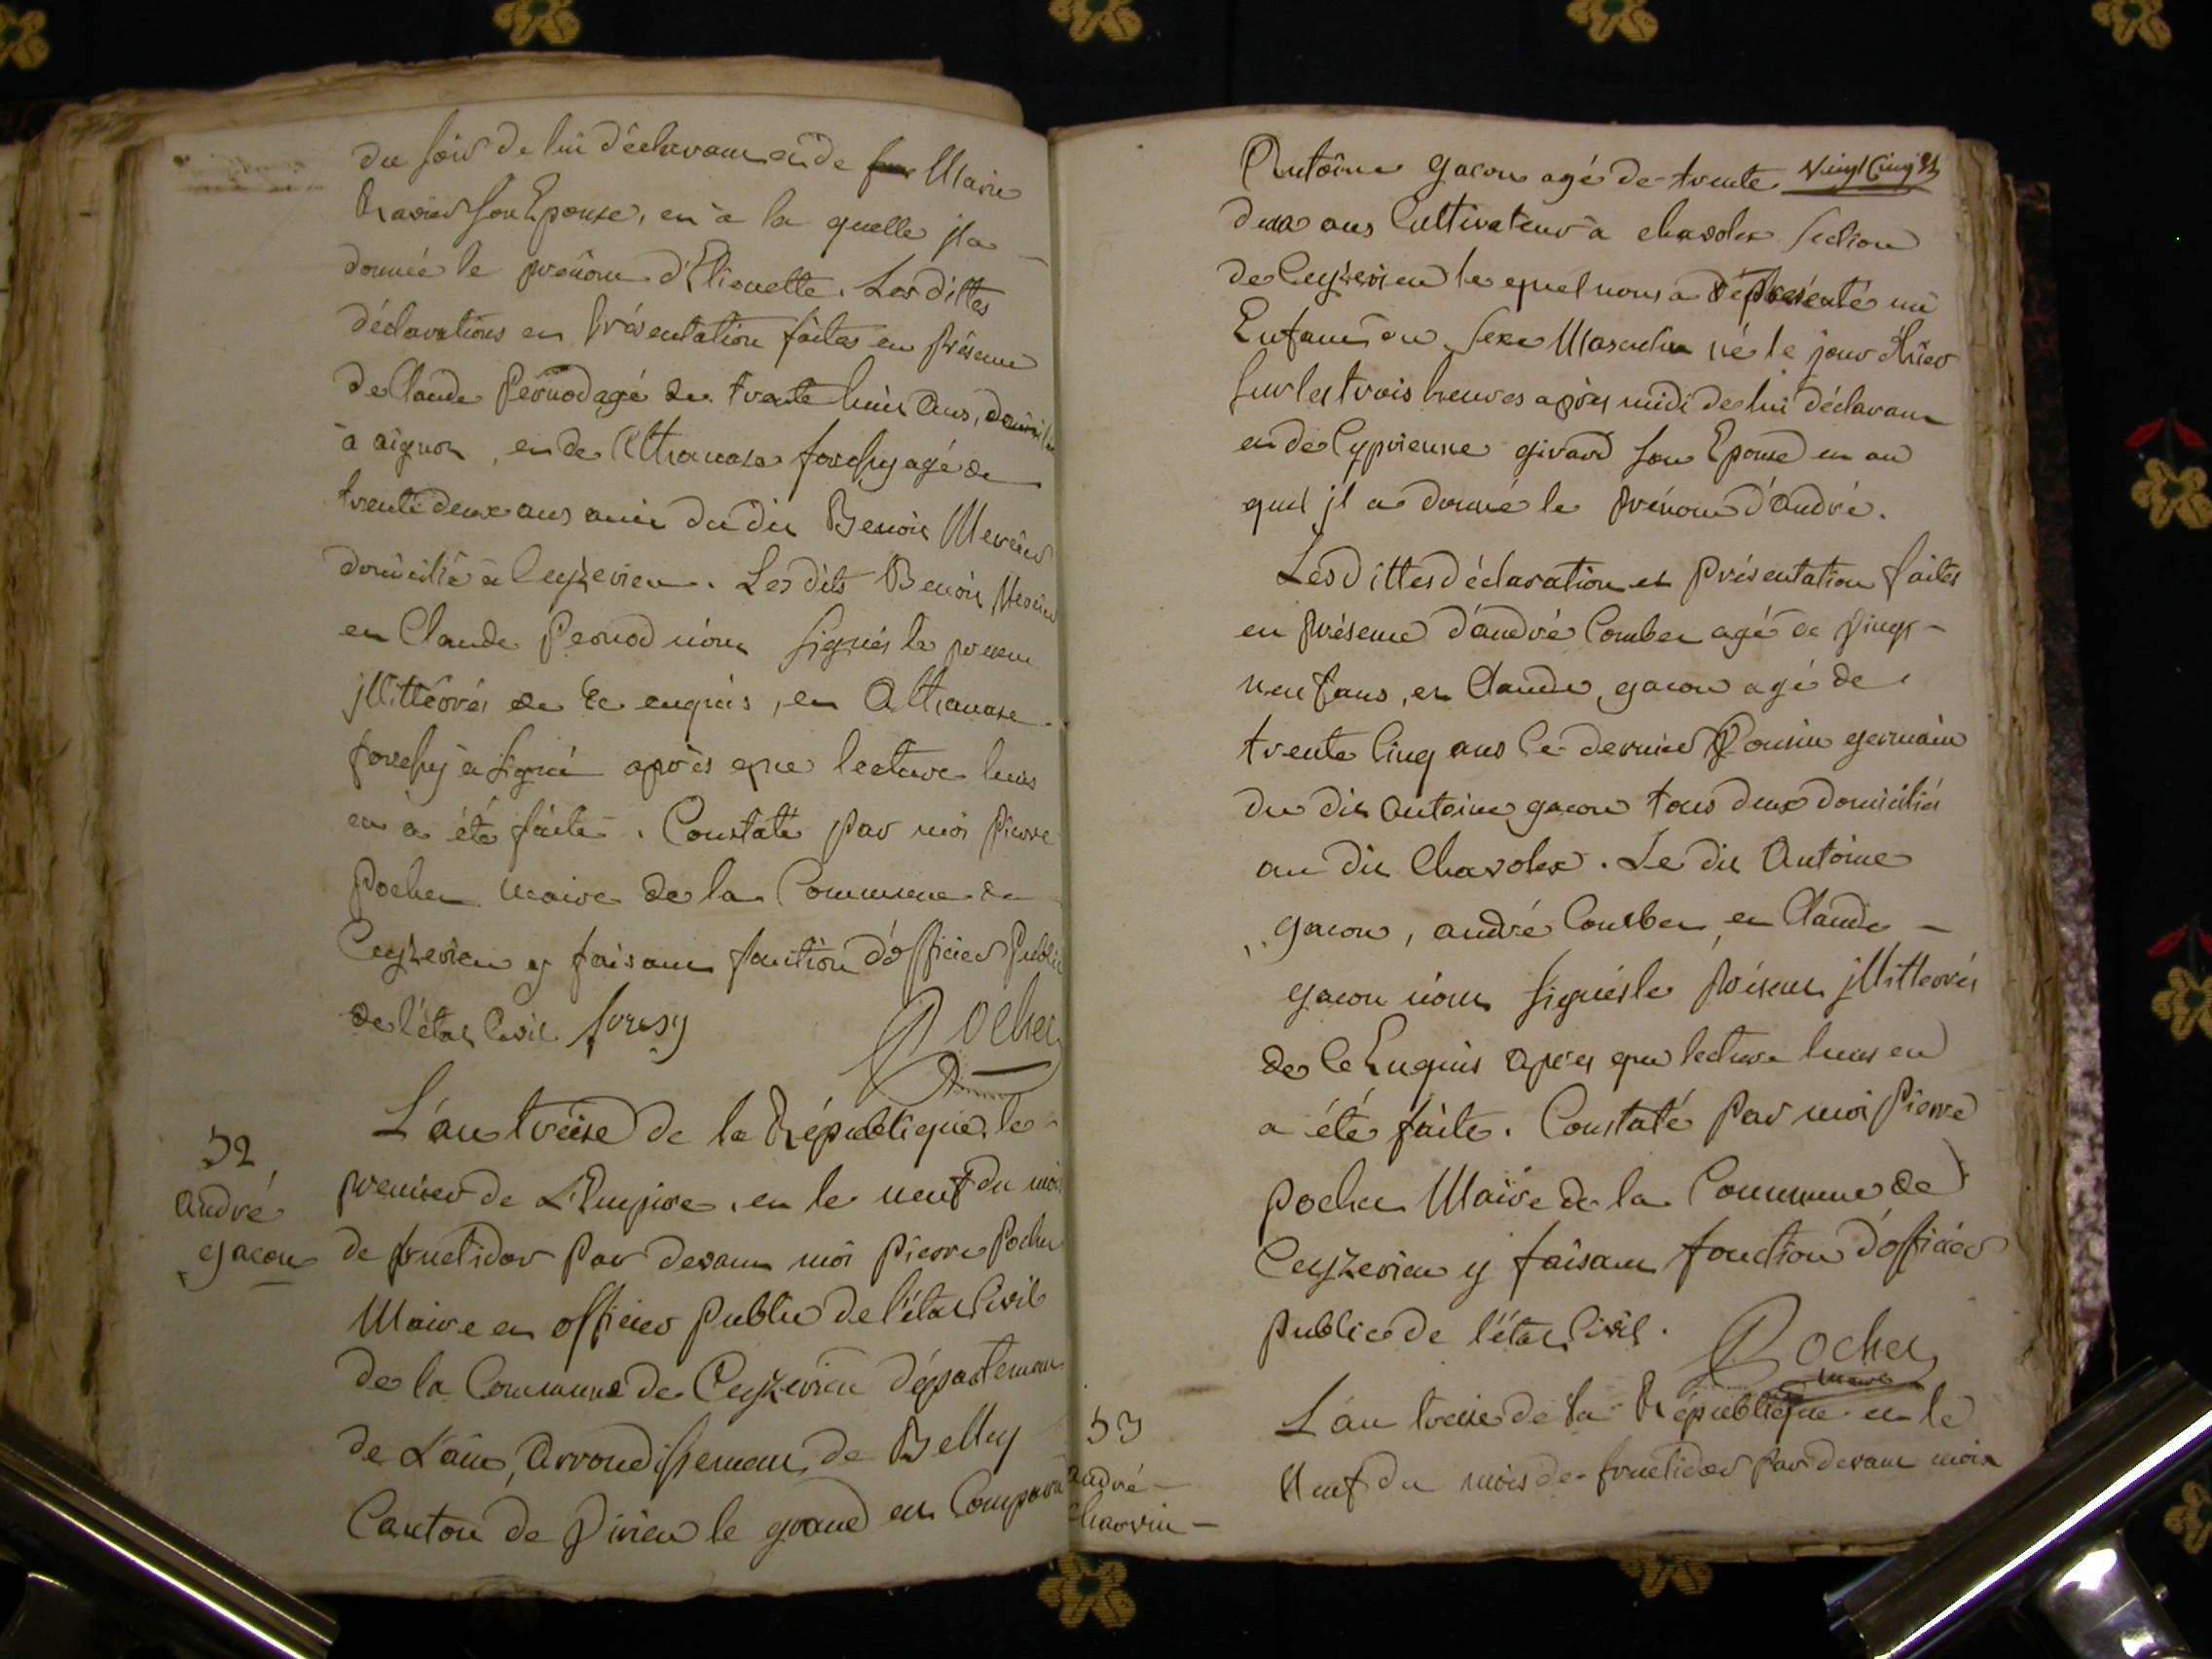 du soir de lui déclarant et de Marie
Ravier son Epouse, et à la quelle il a
donnée le prénom d'Etienette. Les dittes
déclarations et présentation faites en présence
de Claude Pernod agé de trente huit ans, domicilié
à aignoz, et de Athanase forchy agé de
trente deux ans ami du dit Benoit Mercier
domicilié à Ceyzerieu. Les dits Benoit Mercier
et Claude Pernod n'ont signés le présent
jllittérés de Ce enquis, et Athanase
forchy à signé après que lecture leurs
en à été faite. Constaté par moi Pierre
Pochet maire de la Commune de
Ceyzerieu y faisant fonction d'officier Public
de l'état Civil. forcsy Pochet
52
André
gacon
L'an treize de la République, le
premier de L'Empire, et le neuf du mois
de fructidor Par devant moi Pierre Pochet
Maire et officier Public de l'état Civil
de la Commune de Ceyzerieu département
de L'ain, Arrondissement de Belley
Canton de Virieu le grand est Comparu
Vingt Cinq
Antoine gacon agé de trente
deux ans Cultivateur à chavolex Section
de Ceyzerieu le quel nous a présenté un
Enfant du Sexe Masculin né le jour d'hier
sur les trois heures après midi de lui déclarant
et de Cyprienne girard son Epouse et au
quel jl a donné le prénom d'andré.
Les dittes déclaration et présentation faites
en présence d'andré Combet agé de vingt
neuf ans, et Claude gacon agé de
trente Cinq ans Ce dernier Cousin germain
du dit Antoine gacon tous deux domiciliés
au dit Chavolex. Le dit Antoine
gacon, andré Combet et Claude
gacon n'ont signés le présent jllittérés
de Ce Enquis Après que lecture leurs en
a été faite. Constaté Par moi Pierre
Pochet Maire de la Commune de
Ceyzerieu y faisant fonction d'officier
Public de l'état Civil. Pochet
maire
53
andré
charvin
L'an treize de la République et le
Neuf du mois de fructidor Par devant moi